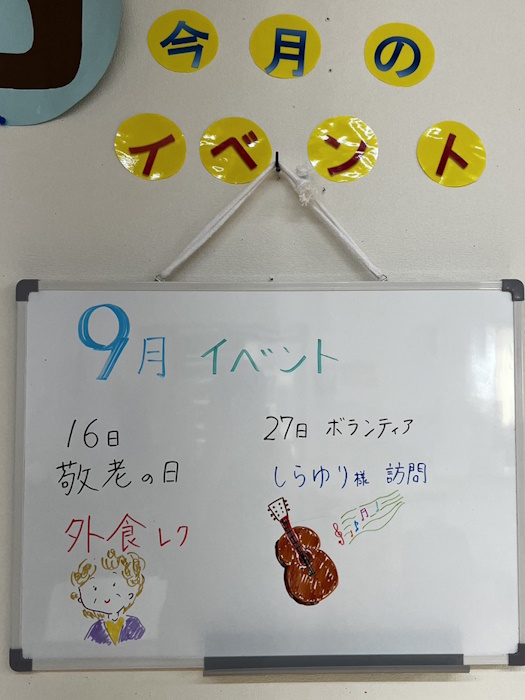 今月の
イベント
9月 イベント
16日
敬老の日
外食レク
27日 ボランティア
しらゆり様 訪問